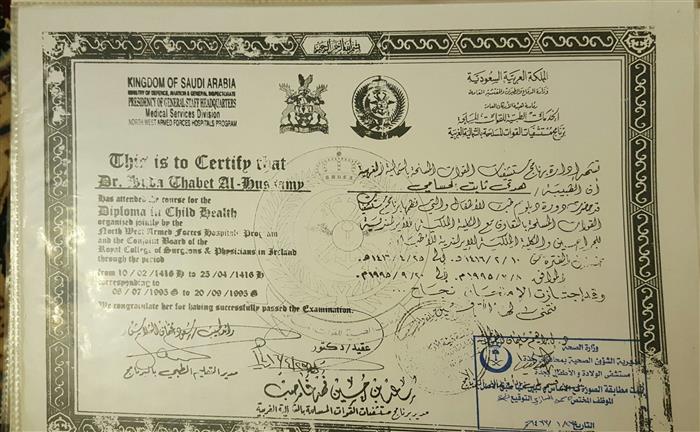 بسم الله الرحمن الرحيم
KINGDOM OF SAUDI ARABIA
MINISTRY OF DEFENCE, AVIATION & GENERAL INSPECTORATE
PRESIDENCY OF GENERAL STAFF HEADQUARTERS
Medical Services Division
NORTH WEST ARMED FORCES HOSPITALS PROGRAM
المملكة العربية السعودية
وزارة الدفاع والطيران والمفتشية العامة
رئاسة هيئة الأركان العامة
الخدمات الطبية للقوات المسلحة
برنامج مستشفيات القوات المسلحة بالشمالية الغربية
This is to Certify that
Dr. Huda Thabet Al-Hussamy
Has attended the course of the
Diploma in Child Health
organized jointly by the
North West Armed Forces Hospitals Program
and the Conjoint Board of the
Royal College of Surgeons & Physicians in Ireland
through the period
from 10 / 02 / 1416 H to 25 / 04 / 1416 H
corresponding to
08 / 07 / 1995 to 20 / 09 / 1995
We congratulate her for having successfully passed the Examination.
تشهد إدارة برنامج مستشفيات القوات المسلحة بالشمالية الغربية
أن الطبيبة / هدى ثابت الحسامي
قد حضرت دورة دبلوم طب الأطفال والتي نظمها برنامج مستشفيات
القوات المسلحة بالتعاون مع الكلية الملكية الأيرلندية
للجراحين والكلية الملكية الأيرلندية للأطباء
الفترة من ١٤١٦/٢/١٠ إلى ١٤١٦/٤/٢٥
الموافق ١٩٩٥/٧/٨ إلى ١٩٩٥/٩/٢٠
وقد اجتازت الامتحان بنجاح
عقيد / دكتور
مدير التعليم الطبي بالبرنامج
مدير برنامج مستشفيات القوات المسلحة بالشمالية الغربية
وزارة الصحة
مديرية الشؤون الصحية بمحافظة جدة
مستشفى الولادة والأطفال بجدة
الموظف المختص
التوقيع
التاريخ